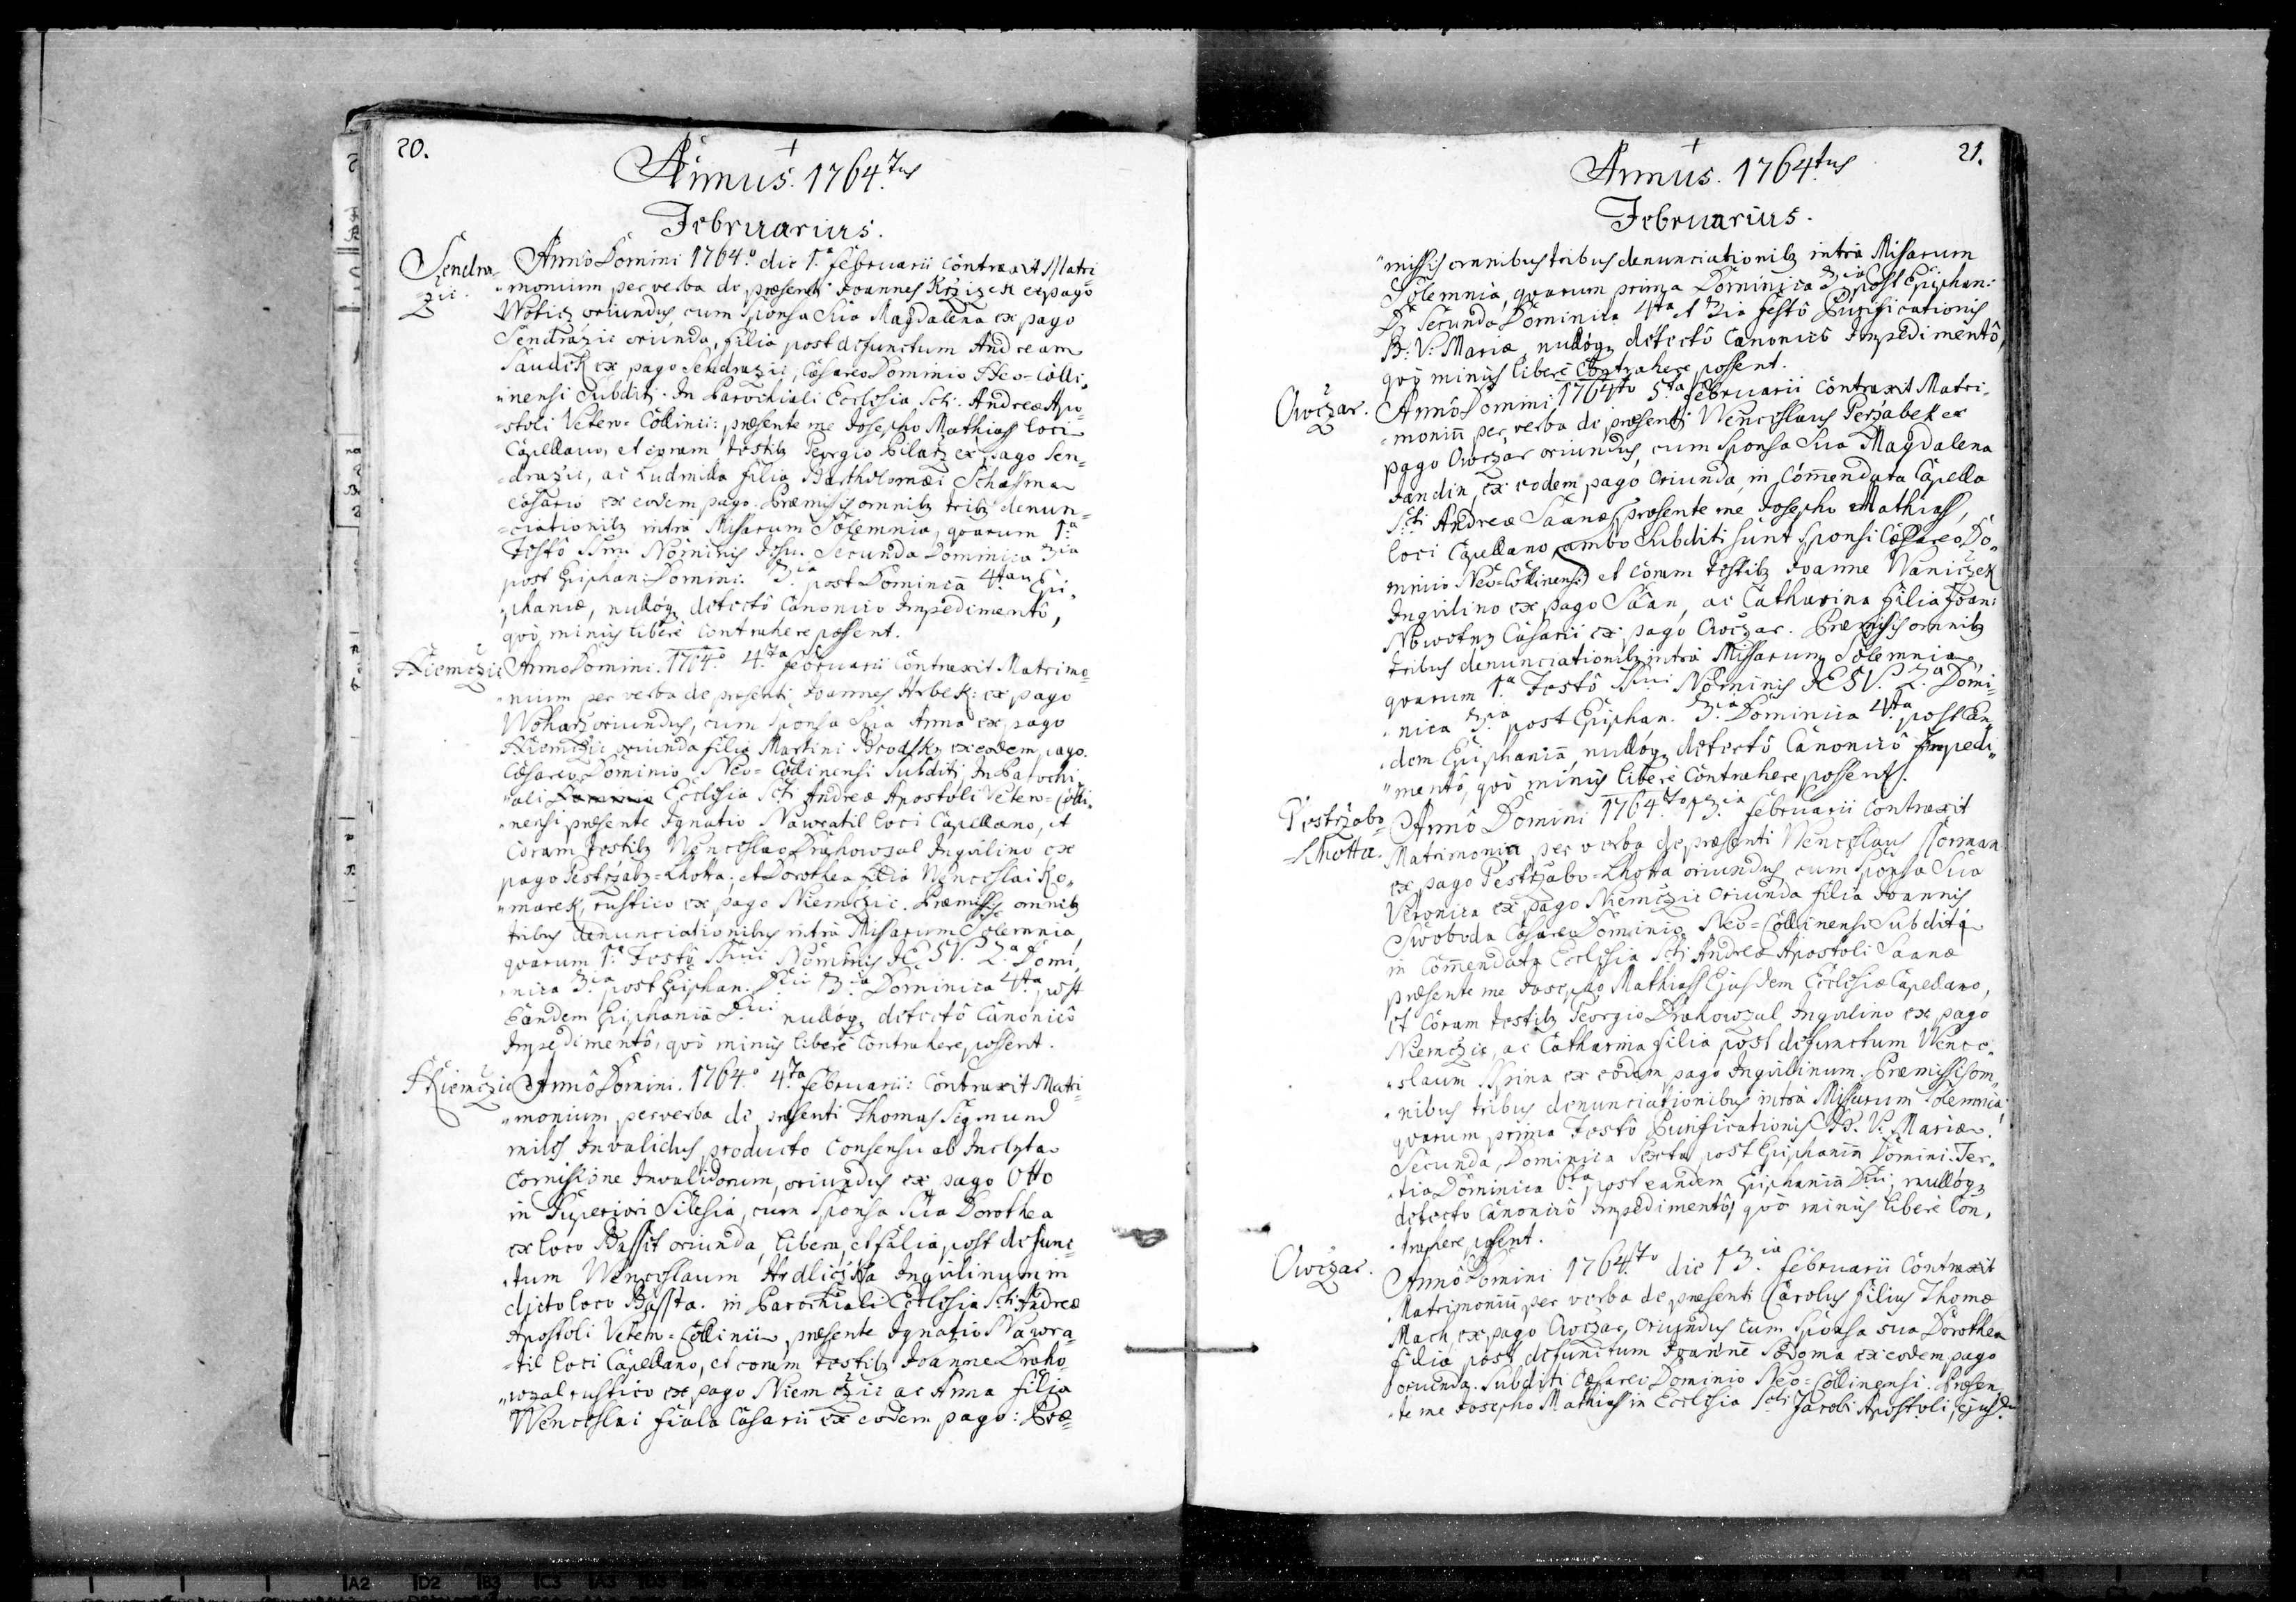 20.
Annus. 1764.tus
Februarius.
Sendra-
-zic.
Anno Domini 1764.o die 1.a Februarii Contraxit Matri
"monium per verba de præsenti Joannes Krzizek ex pago
Woticz oriundus, cum Sponsa Sua Magdalena ex pago
Sendrazic oriunda, filia post defunctum Andream
Saudek ex pago Sendrazic, Cæsareo Dominio Neo-Colli„
„nensi Subditi. In Parochiali Ecclesia Scti. Andreæ Apo-
-stoli Vetero-Collinii: præsente me Josepho Mathiass loci
Capellano, et coram testibz Georgio Pilarz ex pago Sen„
-drazic, ac Ludmilla filia Bartholomæi Schassma
Casario ex eodem pago. Præmissis omnibz tribz denun-
-ciationibz intra Missarum Solemnia, quarum 1.a
Festô SSmi Nôminis Jesu. Secunda Dominica 3.ia
post Epiphan: Domini. 3.ia post Dominicā 4.tam Epi„
„phaniæ, nullóq detectô Canonico Impedimentô,
quò minùs liberè contrahere possent.
Niemczic
Anno Domini. 1764.o 4.ta Februarii Contraxit Matrimo„
„nium per verba de præsenti Joannes Hrbek: ex pago
Woharz oriundus, cum Sponsa Sua Anna ex pago
Niemczic oriunda filia Martini Brodsky ex eodem pago.
Cæsareo Dominio Neo-Collinensi Subditi, In Parochi„
„ali Ecclesia Scti Andreæ Apostoli Vetero-Colli„
„nensi præsente Ignatio Nawratil loci Capellano, et
Coram testibz Wenceslao Drahowzal Inquilino ex
pago Pestrzabz-Lhotta; et Dorothea filia Wenceslai Ko„
„marek, rustico ex pago Niemczic. Præmissis omnibz
tribus denunciationibus intra Missarum Solemnia,
quarum 1.a Festô SSmi Nôminis JESV. 2.a Domi„
„nica 3.ia post Epiphan. Dni 3.ia Dominica 4.ta post
Eandem Epiphaniā Dni nullóq detectô Canonicô
Impedimentô, quò minùs liberè Contrahere possent.
Niemczic
Annô Domini. 1764.o 4.ta Februarii: Contraxit Matri-
„monium per verba de præsenti Thomas Sigmund
miles Invalidus, producto Consensu ab Inclyta
Comisione Invalidorum, oriundus ex pago Otto
in Superiori Silesia, cum Sponsa Sua Dorothea
ex loco Bassit oriunda, libera, et falia, post defunc„
„tum Wenceslaum Hrdliczka Inquilinum in
dicto loco Bassta. in Parochiali Ecclesia Scti Andreæ
Apostoli Vetero-Collinii præsente Ignatio Nawra-
-til loci Capellano, et coram testibz Joanne Draho„
„wzal rustico ex pago Niemczic ac Anna filia
Wenceslai Fiala Casarii ex eodem pago: Præ=
21.
Annus. 1764.tus
Februarius.
"missis omnibus tribus denunciationibz intra Missarum
Solemnia, quarum prima Dominica 3.ia post Epiphan:
D: Secunda Dominica 4ta et 3ia festô Purificationis
B: V: Mariæ, nullóq detectô Canonicô Impedimentô,
quò minùs liberè Contrahere possent.
Owczar.
Annô Domini 1764to 5.ta Februarii Contraxit Matri-
-moniū per verba de præsenti Wenceslaus Perzabek ex
pago Owczar oriundus, cum Sponsa Sua Magdalena
Jandin, ex eodem pago Oriunda, in Commendata Capella
Scti Andreæ Saanæ, præsente me Josepho Mathiass,
loci Capellano (ambo Subditi sunt Sponsi Cæsareo Do„
minio Neo-Collinensi) et coram testibz Joanne Waniczek
Inquilino ex pago Sáan, ac Catharina filia Joan:
Nowotny Casarii ex pago Owczar. Præmissis omnibz
tribus denunciationibz intra Missarum Solemnia,
quarum 1.a Festô SSmi Nôminis JESV. 2.a Domi„
„nica 3.ia post Epiphan. 3.ia Dominica 4.ta post Ean„
„dem Epiphaniā, nullóq detectô Canonicô Impedi„
„mentô, quò minùs liberè Contrahere possent.
Pestrzabo-
-Lhotta.
Annô Domini 1764.to 13.ia Februarii Contraxit
Matrimoniū per verba de præsenti Wenceslaus Horman
ex pago Pestrzabo-Lhotta oriundus cum Sponsa Sua
Veronica ex pago Niemczic oriunda filia Joannis
Swoboda Cæsareo Dominio Neo-Collinensi Subditi
in Commendata Ecclesia Scti Andreæ Apostoli Saanæ
præsente me Josepho Mathiass Ejusdem Ecclesiæ Capellano,
et Coram testibz Georgio Drahowzal Inquilino ex pago
Niemczic, ac Catharina filia post defunctum Wence„
„slaum Spina ex eodem pago Inquilinum. Præmissis om„
„nibus tribus denunciationibus intra Missarum Solemnia,
quarum prima Festô Purificationis B. V: Mariæ.
Secunda, Dominica Sexta post Epiphaniā Domini. Ter„
„tia Dominica 6.ta post eandem Epiphaniā Dni, nullóq
detecto Canonicô Impedimentô, quò minùs liberè Con„
„trahere possent.
Owczar.
Annô Domini 1764.to die 13.ia Februarii Contraxit
Matrimoniū per verba de præsenti Carolus filius Thomæ
Mach ex pago Owczar, Oriundus cum Sponsa sua Dorothea
filia post defunctum Joanne Sodoma ex eodem pago
oriunda. Subditi Cæsareo Dominio Neo-Collinensi. Præsen„
„te me Josepho Mathiass in Ecclesia Scti Jacobi Apostoli, ejusd